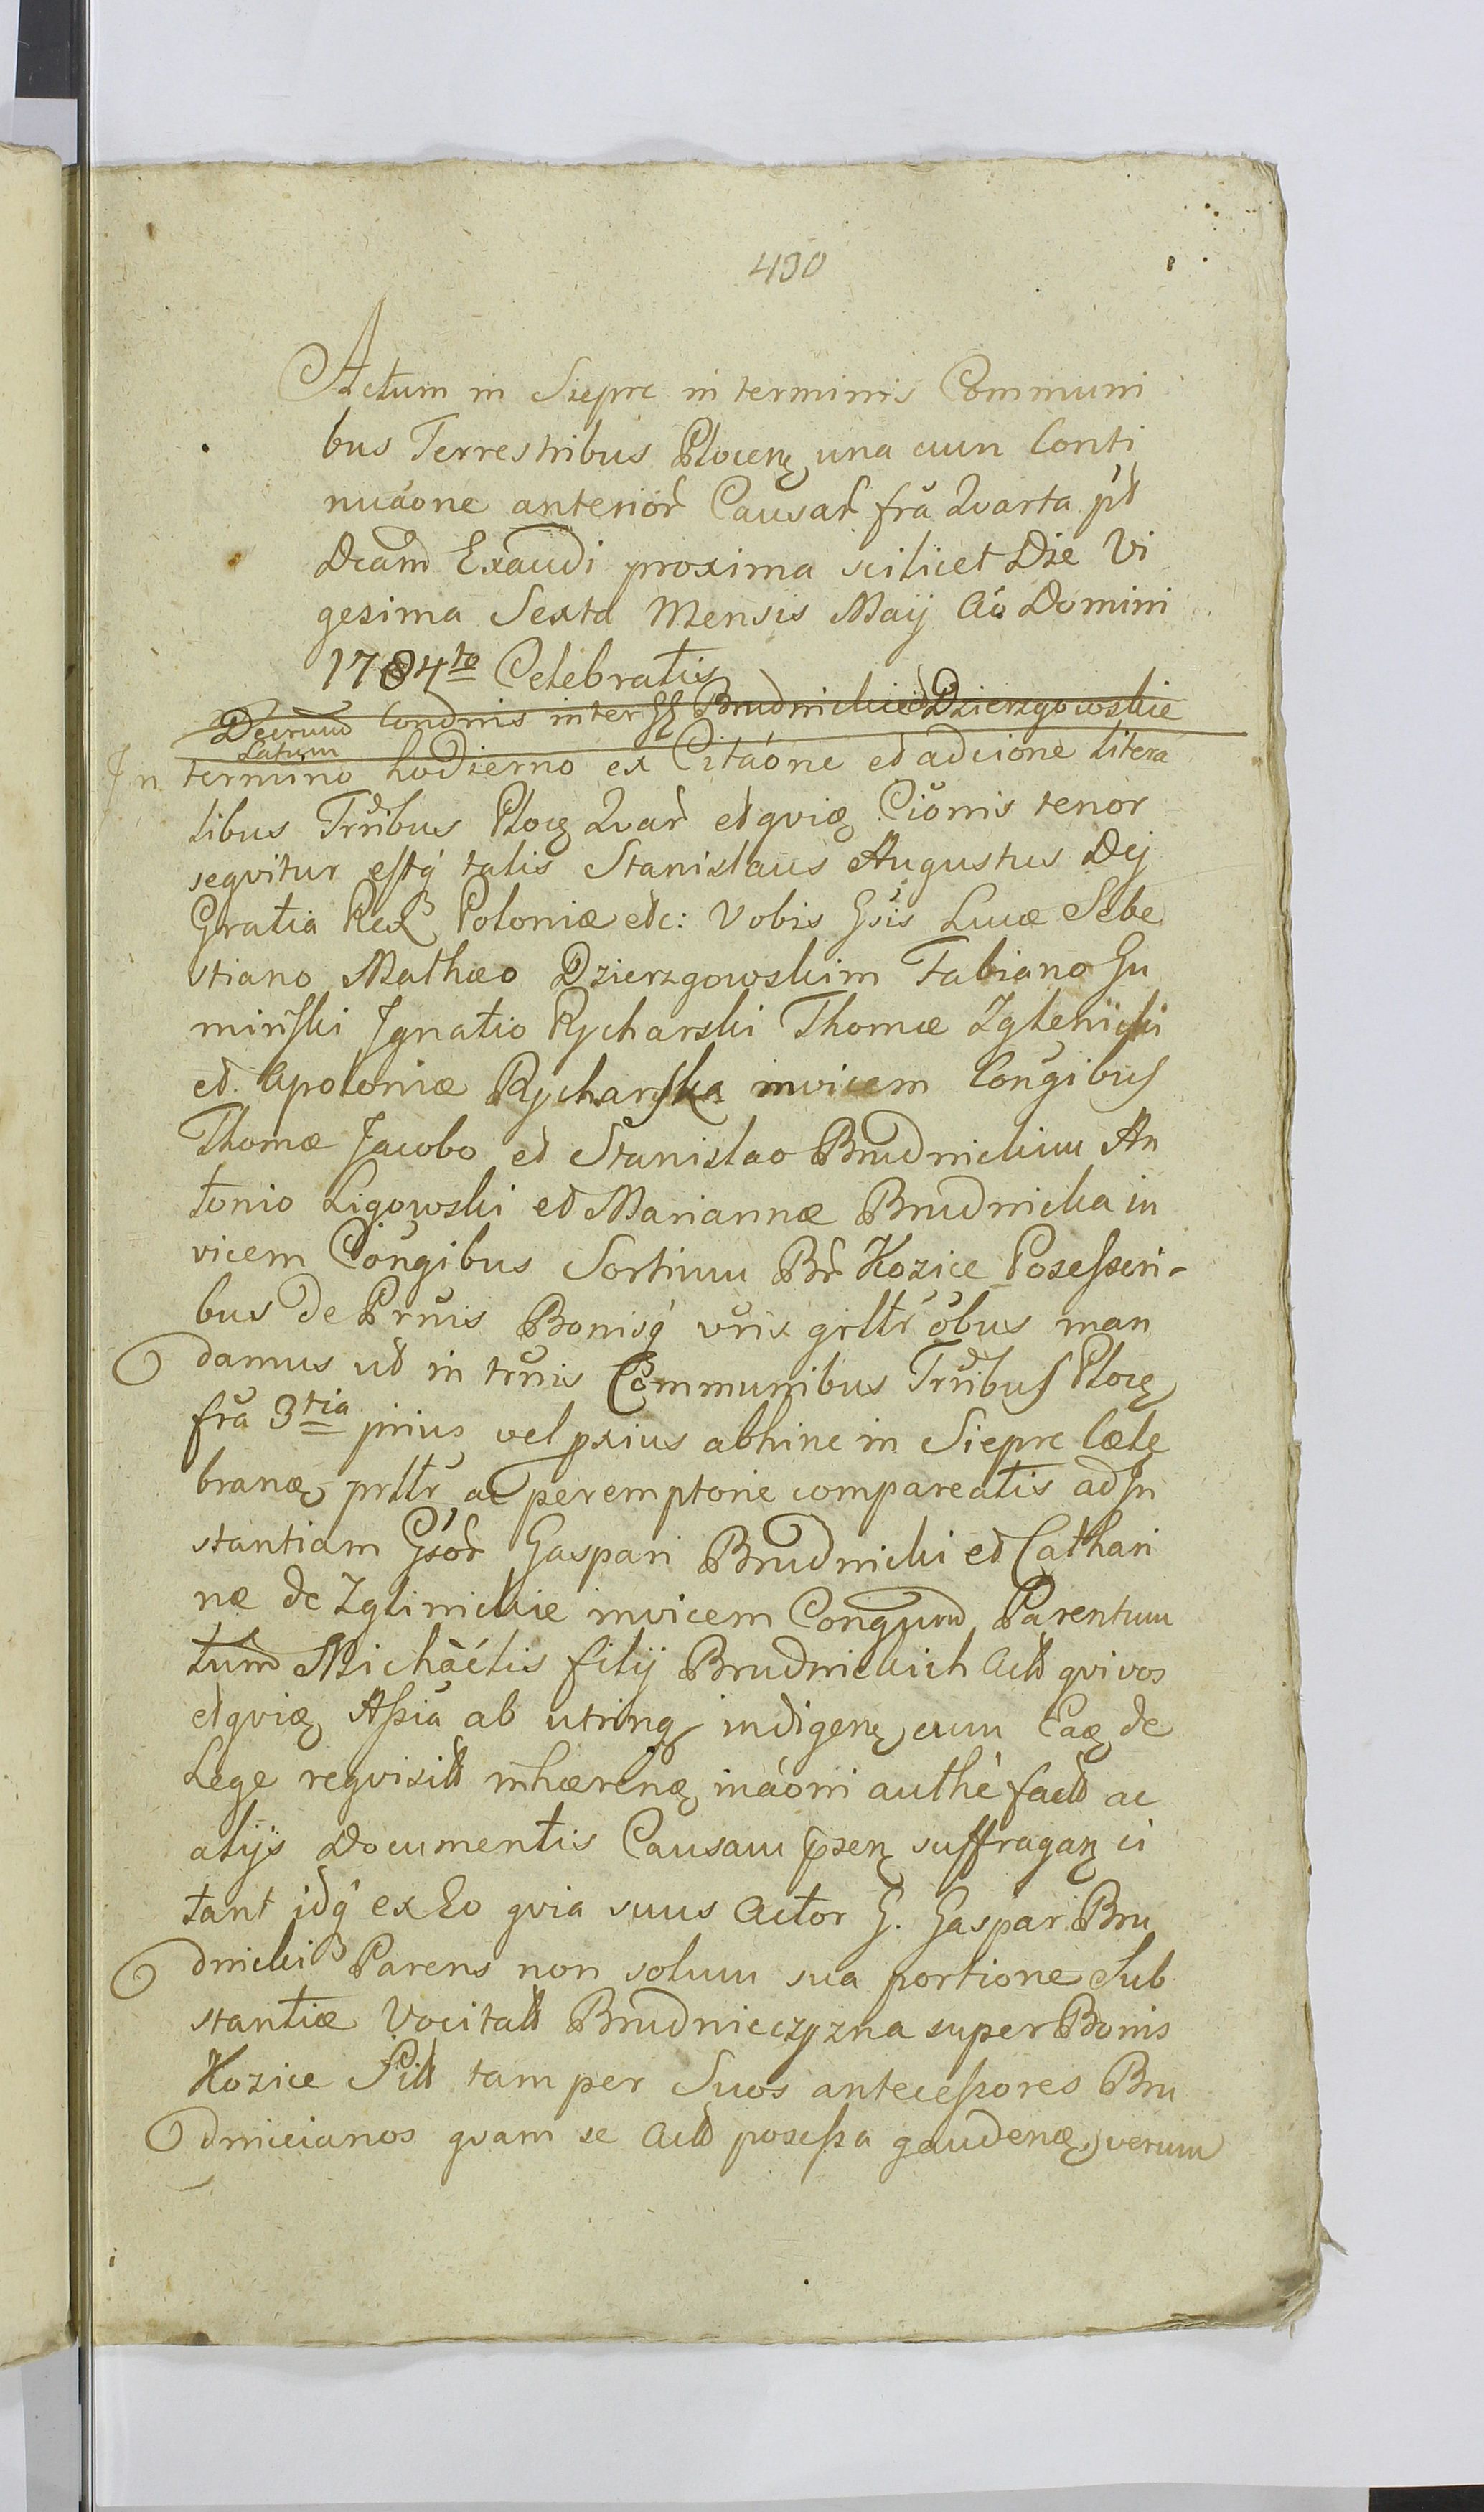 430
Actum in Siepre in terminis Communi
bus Terrestribus Plocen. una cum Conti
nuaone anterior Causar fra Quarta pt
Dcam Exaudi proxima scilicet Die Vi
gesima Sexta Mensis Maij Ao Domini
1784to Celebratis
Decretum Condnis inter GG Brudnickie et Dzierzgowskie
Latum
In termino hodierno ex Citaone et adcione litera
libus Trribus Ploc Quar et qviæ Cionis tenor
seqvitur estq talis Stanislaus Augustus Dej
Gratia Rex Poloniæ etc: Vobis Gsis Lucæ Sebe
stiano Mathæo Dzierzgowskim Fabiano Gu
miński Jgnatio Rycharski Thomæ Zglenicki
et Apoloniæ Rycharska invicem Congibus
Thomæ Jacobo et Stanislao Brudnickim An
tonio Ligowski et Mariannæ Brudnicka in
vicem Congibus Sortium Br Kozice Posesseri-
bus de Prnis Bonisq vris grltr obus man
damus ut in trnis Communibus Trribus Ploc
fra 3tia prius vel pxius abhinc in Siepre Cæle
branæ prltr ac peremptorie compareatis ad Jn
stantiam Gsor Gaspari Brudnicki et Cathari
næ de Zglinickie invicem Congum Parentum
tum Michaelis filij Brudnickich Act qvi vos
et qviæ Assia ab utrinq indigen cum Eaq de
Lege reqvisit inhærenæ inaoni authe fact ac
alijs Documentis Causam psen suffragan ci
tant idq ex Eo qvia suus Actor G. Gaspar Bru
dnicki Parens non solum sua portione Sub
stantiæ Vocitatt Brudnieczyzna super Bonis
Kozice Sitt tam per Suos antecessores Bru
dnicianos qvam se Act posessa gaudenæ, verum